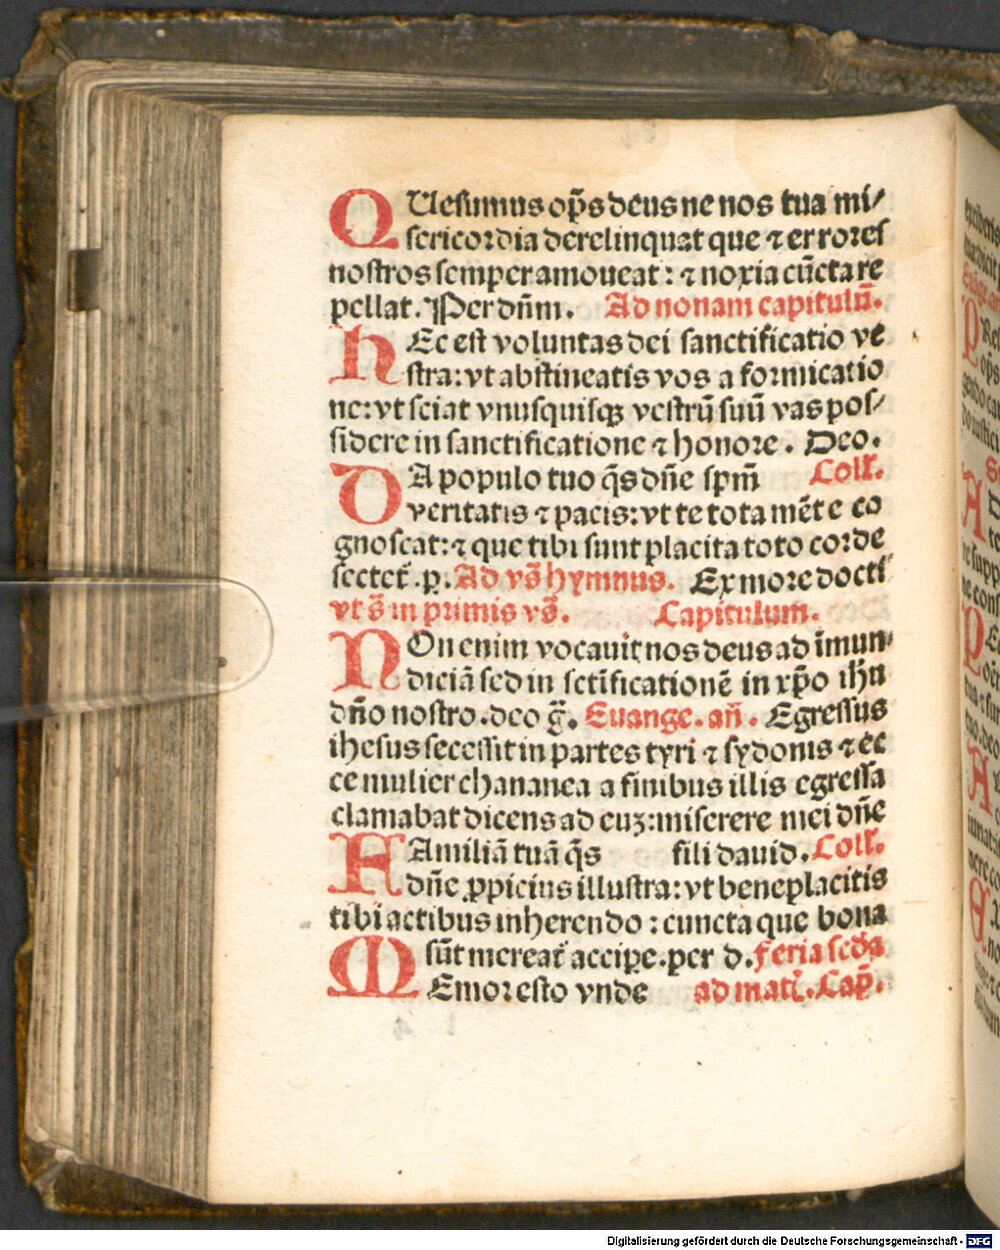 QUesumus op̄s deus ne nos tua mi/
sericordia derelinquat que ⁊ errores
nostros semper amoueat: ⁊ noxia cūcta re
pellat. Per dn̄m. Ad nonam capitulū.
HEc est voluntas dei sanctificatio ve
stra: vt abstineatis vos a fornicatio
ne: vt sciat vnusquisqꝫ vestrū suū vas pos/
sidere in sanctificatione ⁊ honore. Deo.
DA populo tuo q̄s dn̄e sp̄m Coll̄.
veritatis ⁊ pacis: vt te tota mēte co
gnoscat: ⁊ que tibi sunt placita toto corde
sectet̄. p. Ad vs̄ hymnus. Ex more docti
vt s̄ in primis vs̄. Capitulum.
NOn enim vocauit nos deus ad īmun
diciā sed in sctīficationē in xp̄o ih̄u
dn̄o nostro. deo g̃. Euange. an̄. Egressus
ihesus secessit in partes tyri ⁊ sydonis ⁊ ec
ce mulier chananea a finibus illis egressa
clamabat dicens ad euꝫ: miserere mei dn̄e
FAmiliā tuā q̄s fili dauid. Coll̄.
dn̄e ꝓpicius illustra: vt beneplacitis
tibi actibus inherendo: cuncta que bona
sūt mereat̄ accipe. per d. Feria scd̄a
MEmor esto vnde ad mat̄. Cap̄.
Digitalisierung gefördert durch die Deutsche Forschungsgemeinschaft - DFG